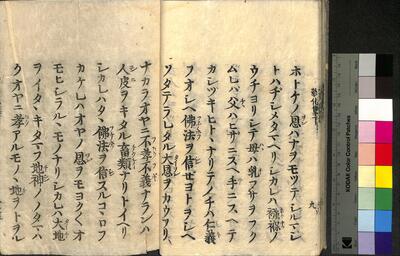 ホトケノ恩ハナヲモツテシルヘシ
トハヂシメタマヘリシカレハ襁褓ノ
ウチヨリシテ母ハ乳フサヲフク
ムレハ父ハヒサニスヘ手ニスヘテ
カシツキヒトヽナリテノチハ仁義
ヲオシヘ佛法ヲ信セヨトヲシヘ
ソタテラレタル大恩ヲカウフリ
ナカラオヤニ不孝不義ナランハ
人皮ヲキタル畜類ナリトイヘリ
シカレハタヽ佛法ヲ信スルコヽロフ
カケレハオヤノ恩ヲモヨクヽオ
モヒシラルヽモノナリシカレハ大地
ヲイタヽキタマフ地神ノノタマハ
クオヤニ孝アルモノハ地ヲトヲル
KODAK Color Control Patches